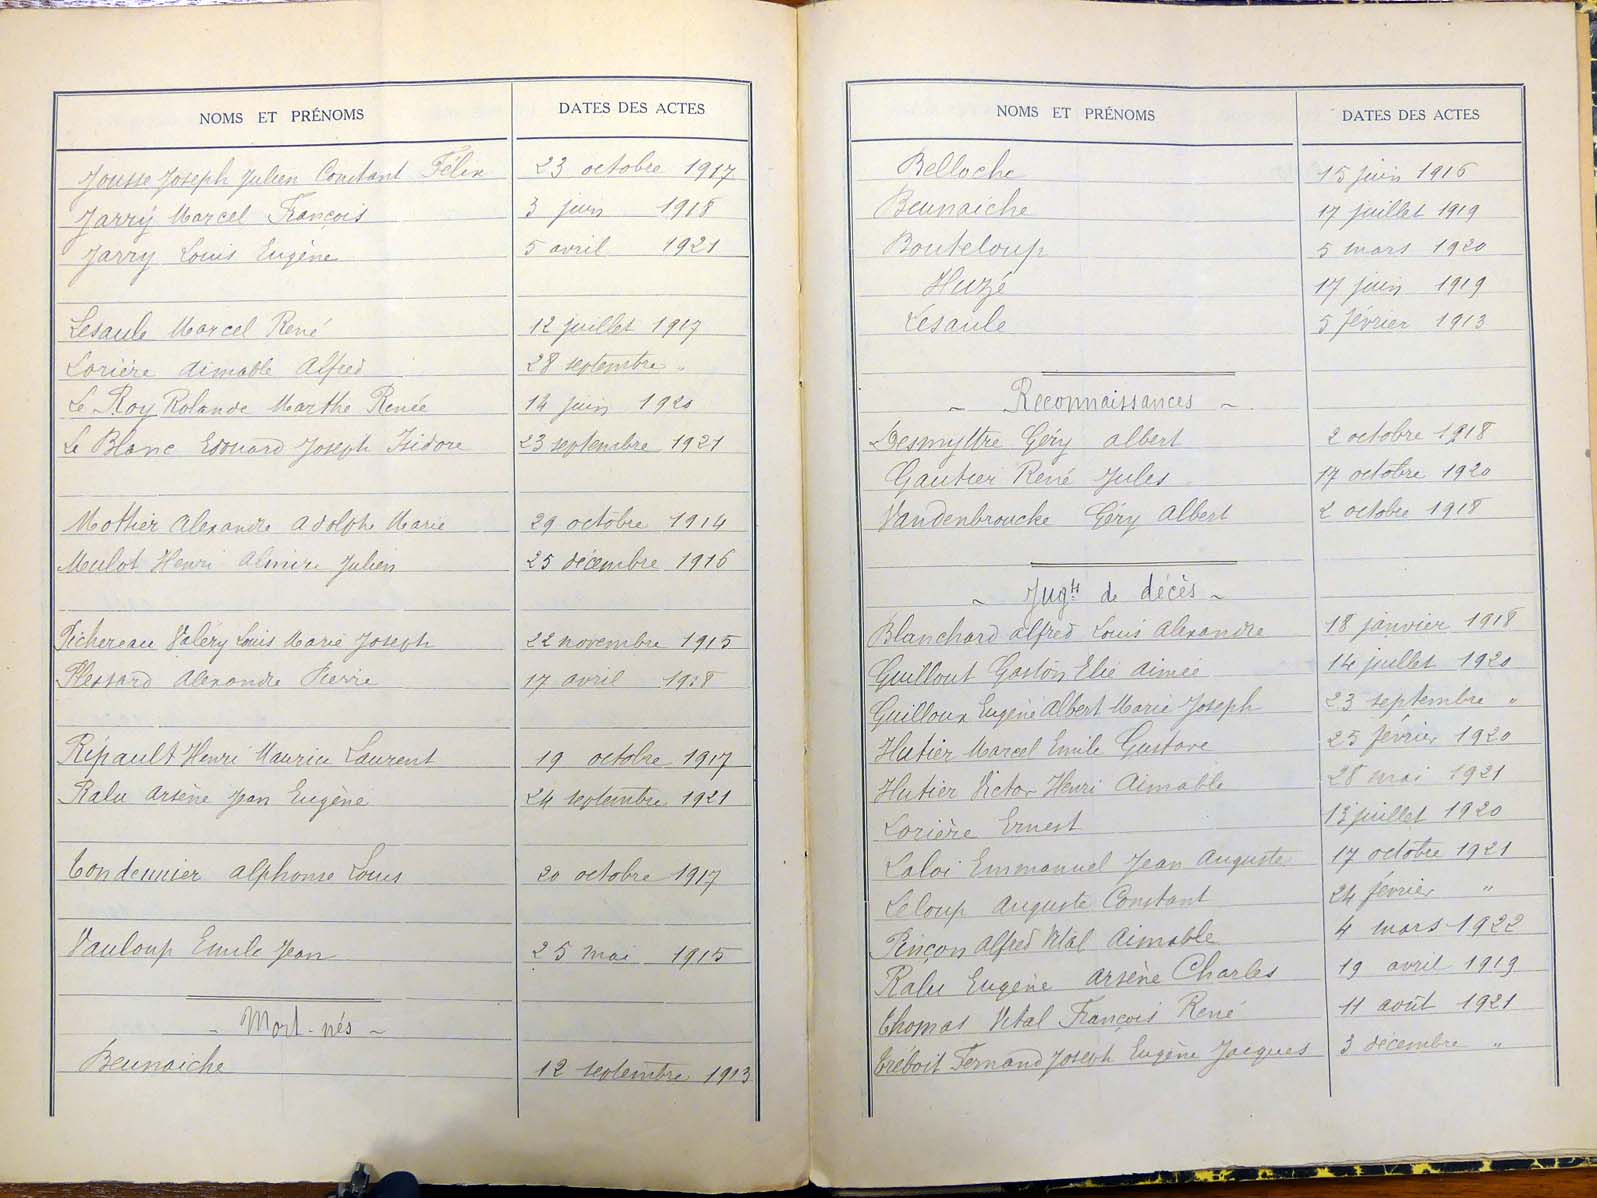 NOMS ET PRÉNOMS DATES DES ACTES
Jousse Joseph Julien Constant Félix 23 octobre 1917
Jarry Marcel François 3 juin 1918
Jarry Louis Eugène 5 avril 1921
Lesaule Marcel René 12 juillet 1917
Lorière Aimable Alfred 28 septembre "
Le Roy Rolande Marthe Renée 14 juin 1920
Le Blanc Edouard Joseph Isidore 23 septembre 1921
Mottier Alexandre Adolphe Marie 29 octobre 1914
Mulot Henri Almire Julien 25 décembre 1916
Pichereau Valéry Louis Marie Joseph 22 novembre 1915
Plessard Alexandre Pierre 17 avril 1918
Ripault Henri Maurice Laurent 19 octobre 1917
Ralu Arsène Jean Eugène 24 septembre 1921
Alphonse Louis 20 octobre 1917
Vauloup Emile Jean 25 mai 1915
- Mort-nés -
Beunaiche 12 septembre 1913
NOMS ET PRÉNOMS DATES DES ACTES
Belloche 15 juin 1916
Beunaiche 17 juillet 1919
Bouteloup 5 mars 1920
Huzé 17 juin 1919
Lesaule 5 février 1913
- Reconnaissances -
Desmyttre Géry Albert 2 octobre 1918
Gautier René Jules 17 octobre 1920
Vandenbroucke Géry Albert 2 octobre 1918
- Jugts de décès -
Blanchard Alfred Louis Alexandre 18 janvier 1918
Guillout Gaston Elie Aimée 14 juillet 1920
Guilloux Eugène Albert Marie Joseph 23 septembre "
Hutier Marcel Emile Gustave 25 février 1920
Hutier Victor Henri Aimable 28 mai 1921
Lorière Ernest 13 juillet 1920
Laloi Emmanuel Jean Auguste 17 octobre 1921
Leloup Auguste Constant 24 février "
Pinçon Alfred Vital Aimable 4 mars 1922
Ralu Eugène Arsène Charles 19 avril 1919
Thomas Vital François René 11 août 1921
Créboit Fernand Joseph Eugène Jacques 3 décembre "